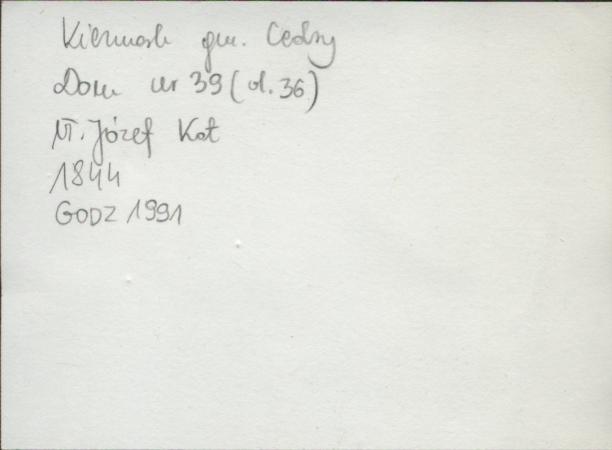 gm. Cedzy
Dom nr 39 (d. 36)
Wł. Józef Kot
1844
GODZ 1991